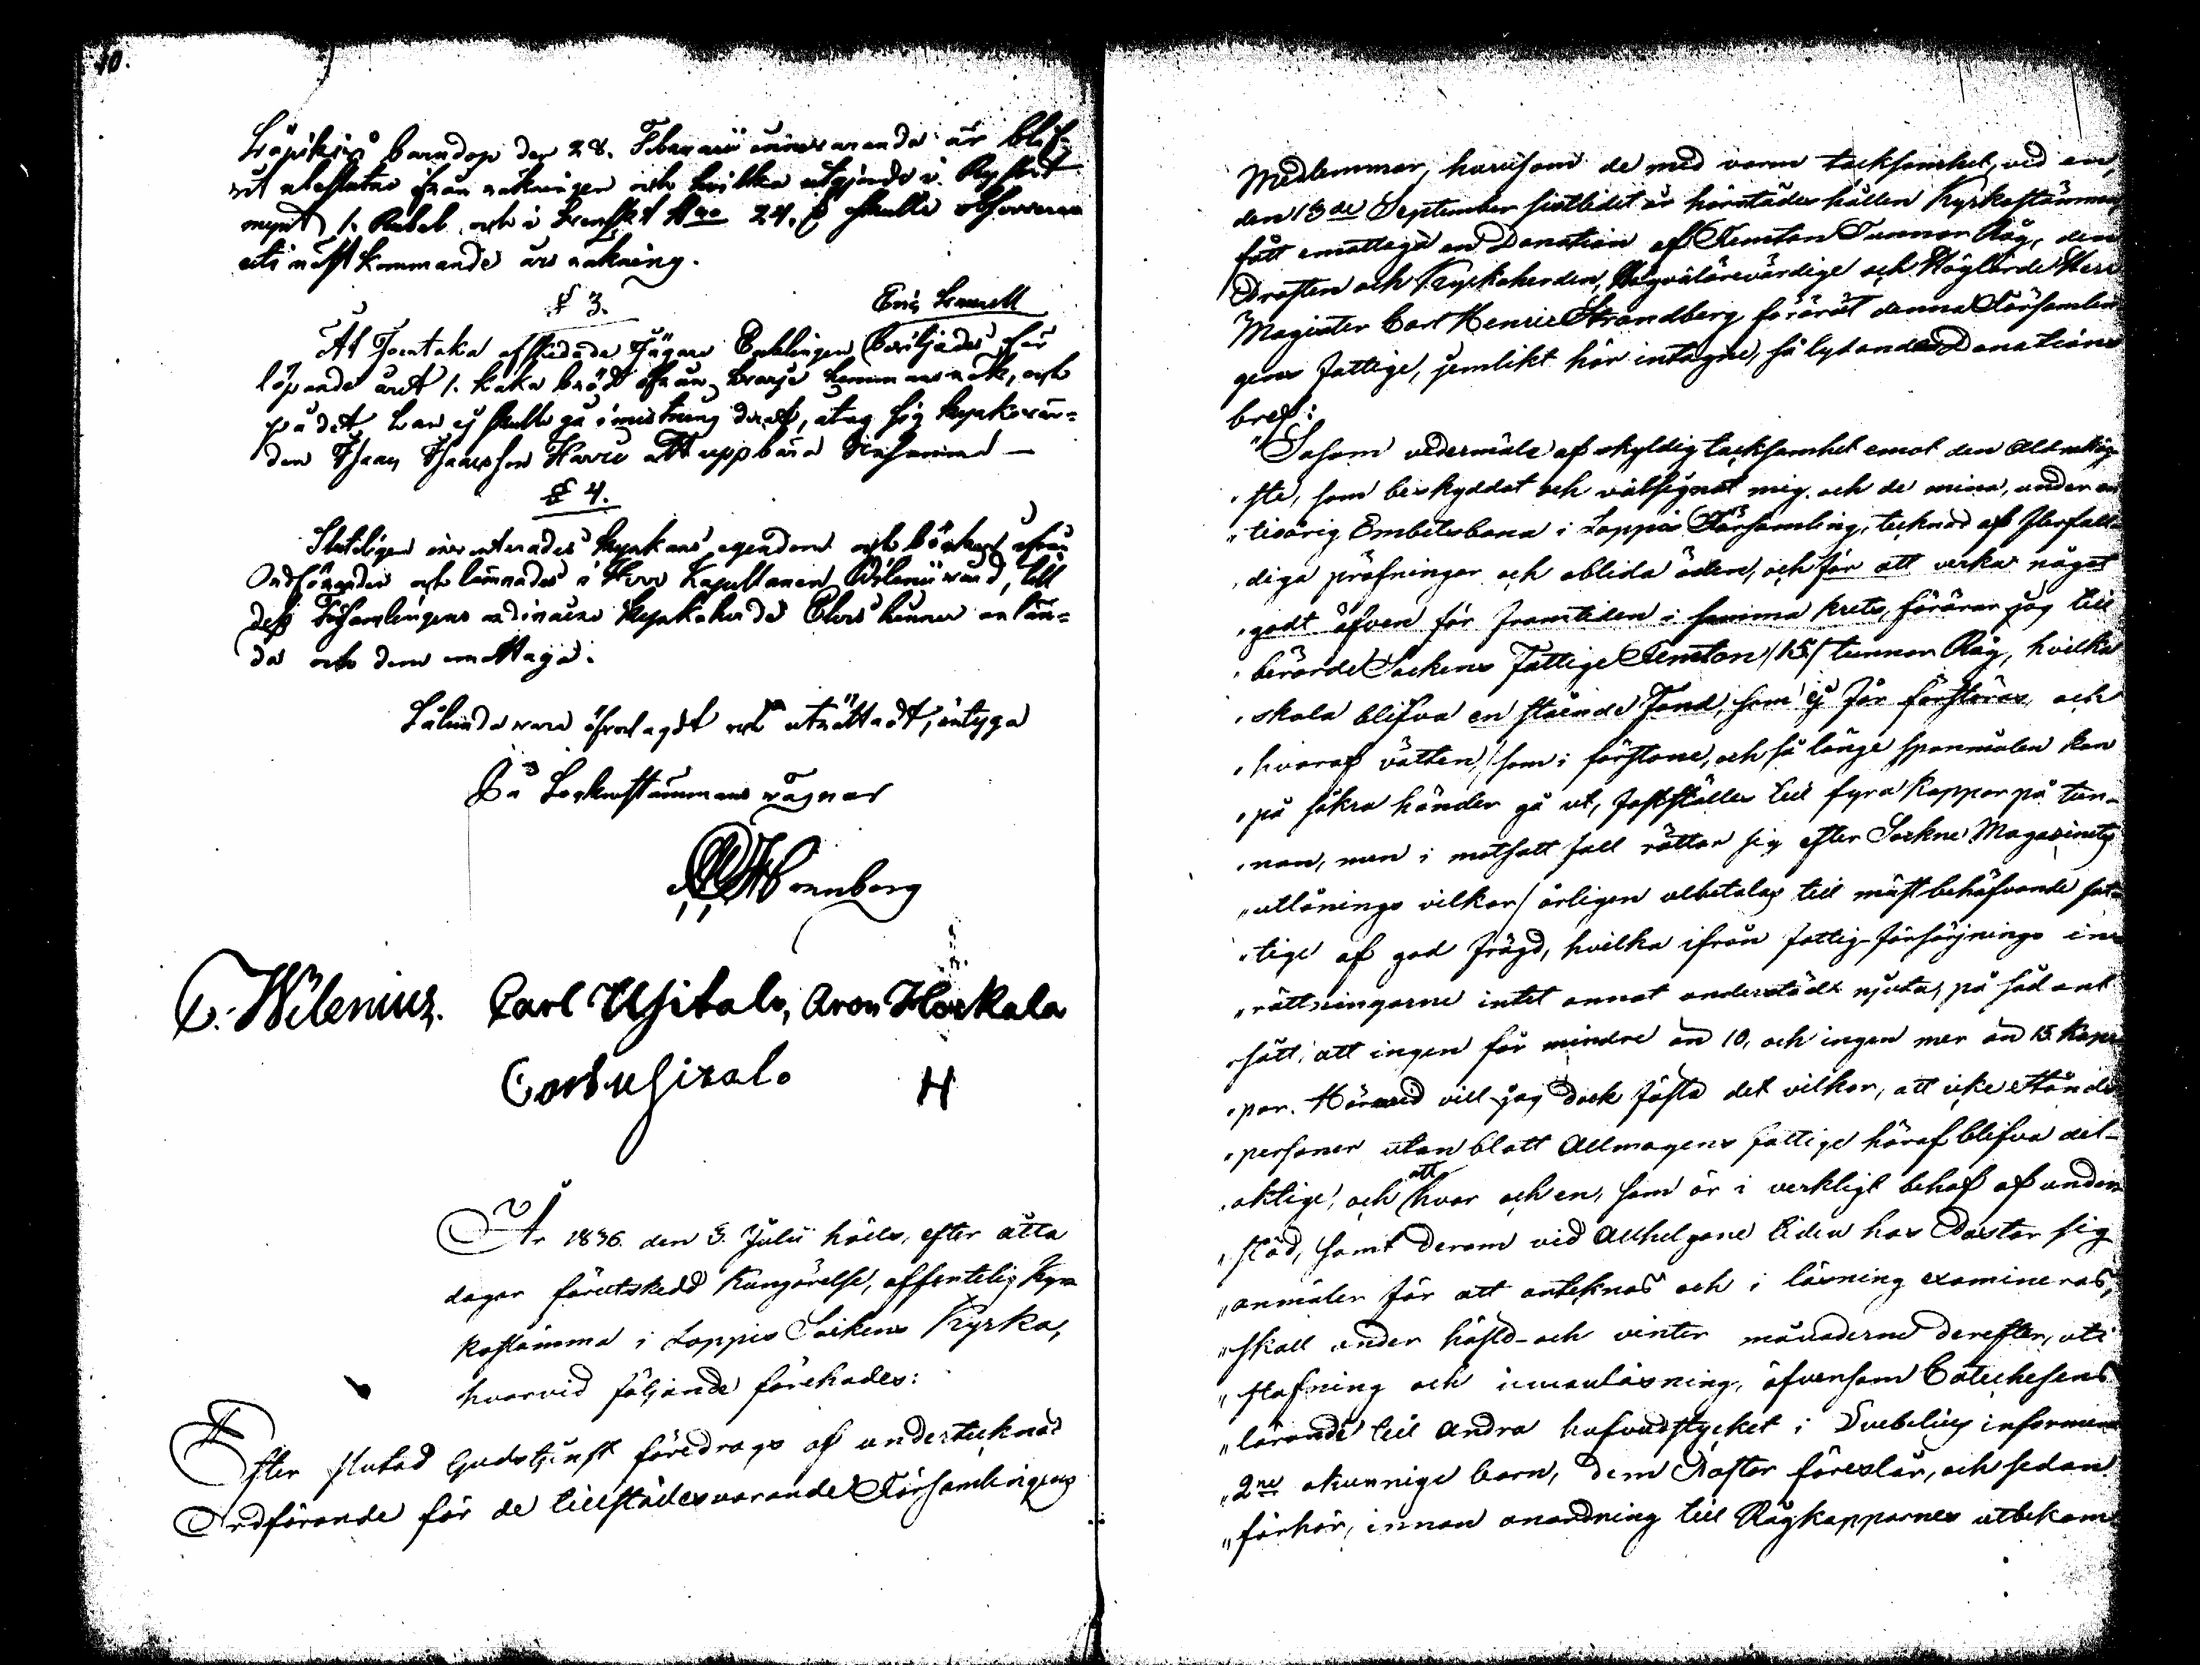 10.
barndop den 28. Februarii innevarande år blif-
vit uteslutne ifrån räkningen och hvilka utgjorde i Ryskt
mynt 1. Rubel och i Svenskt 24. skulle observeras
uti nästkommande års räkning.
§ 3.
At Torntaka afskedade Jägare Enklingen beviljades för
löpande året 1. kaka bröd ifrån hvarje hemmans rök, och
på det han ej skulle gå i mistning deraf, åtog sig kyrkovär-
den att uppbära densamma —
§ 4.
Slutligen inventerades kyrkans egendom och böcker af
Ordföranden och lämnades i Herr Kapellanen Wilenii vård, till
dess Församlingens ordinarie Kyrkoherde hinner anlän-
da och dem emottaga.
Sålunda vara öfverlagdt och uträttadt, intyga
På Sockenstämmans vägnar
C. Wilenius. Carl Usitalo, Aron Horkala
Carl Usitalo H
År 1836 den 3. Julii hölls, efter åtta
dagar förutskedd kungörelse, offentelig Kyr-
kostämma i Loppis Sockens Kyrka,
hvarvid följande förehades:
Efter slutad Gudstjenst föredrogs af undertecknad
Ordförande för de tillstädesvarande Församlingens
Medlemmar, hurusom de med varm tacksamhet, vid en,
den 13de September sistlidet år härstädes hållen Kyrkostämma,
fått emottaga en Donation af Femton Tunnor Råg, den
Prosten och Kyrkoherden, Högvälärevördige och Höglärde Herr
Magister Carl Henric Strandberg förärat denna Församlin-
gens fattige, jemlikt här intagne, så lydande Donations
bref:
"Såsom vedermäle af skyldig tacksamhet emot den Aldrahög-
"ste, som beskyddat och välsignat mig och de mina, under en
"tioårig Embetsbana i Loppis Församling, tecknad af flerfall-
"diga pröfningar och blida öden, och för att verka något
"godt äfven för framtiden i samma krets, förärar jag till
"berörde Sockens Fattige Femton /15/ tunnor Råg, hvilka
"skola blifva en stående Fond, som ej får förstöras, och
"hvaraf räntan, /som i förstone, och så länge spanmålen kan
"på säkra händer gå ut, fastställes till fyra kappar på tun-
"nan, men i motsatt fall rättar sig efter Sockne Magazinets
"utlånings vilkor/ årligen utbetalas till mäst behöfvande fat-
"tige af god frägd, hvilka ifrån fattig-försörjnings in-
"rättningarne intet annat understöd njuta, på sådant
"sätt, att ingen får mindre än 10, och ingen mer än 15. Kap-
"par. Härved vill jag dock fästa det vilkor, att icke Stånds
"personer utan blott Allmogens fattige häraf blifva del-
"aktige, och att hvar och en, som är i verkligt behof af under-
"stöd, samt derom vid Allhelgone tiden hos Pastor sig
"anmäler för att anteknas och i läsning examineras,
"skall under höst- och vinter månaderne derefter, uti
"stafning och innanläsning, äfvensom Catechesens
"lärande till andra hufvudstycket i Svebelius informera
"2ne okunnige barn, dem Pastor föreslår, och sedan
"förhör, innan anordning till Rågkapparnes utbekom-